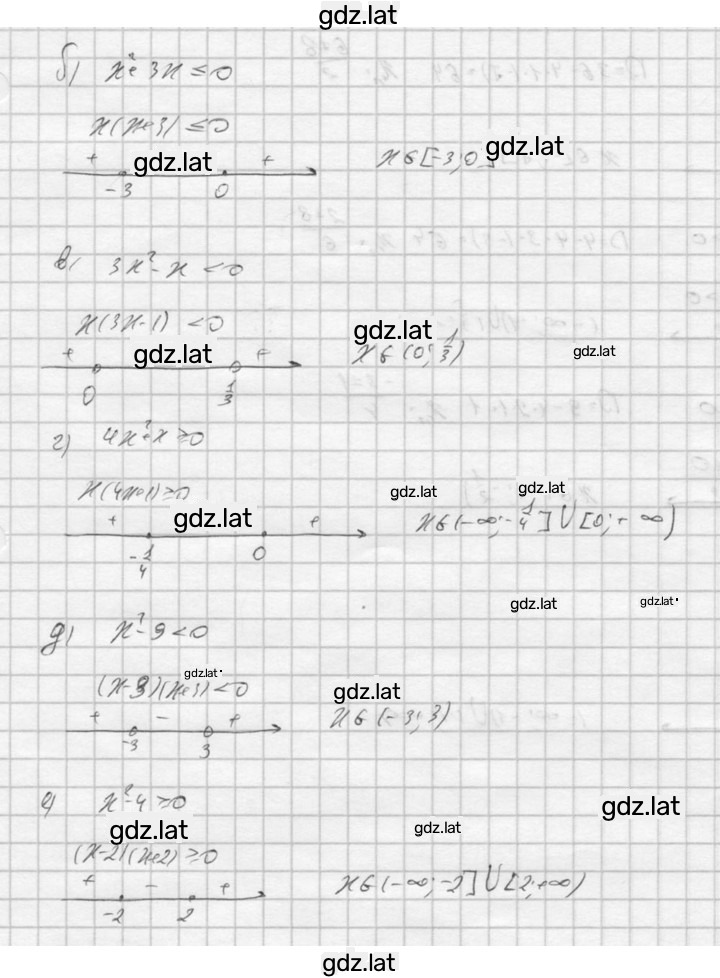 gdz.lat
б) x²+3x ≤ 0
x(x+3) ≤ 0
+ gdz.lat + x∈[-3;0] gdz.lat
-3 0
в) 3x²-x < 0
x(3x-1) < 0
+ gdz.lat + gdz.lat x∈(0; 1/3) gdz.lat
0 1/3
г) 4x²+x ≥ 0
x(4x+1) ≥ 0 gdz.lat gdz.lat
+ gdz.lat + x∈(-∞; -1/4] ∪ [0; +∞)
-1/4 0
gdz.lat gdz.lat
д) x²-9 < 0
gdz.lat
(x-3)(x+3) < 0 gdz.lat
+ - + x∈(-3; 3)
-3 3
е) x²-4 ≥ 0 gdz.lat
gdz.lat gdz.lat
(x-2)(x+2) ≥ 0
+ - + x∈(-∞; -2] ∪ [2; +∞)
-2 2
gdz.lat